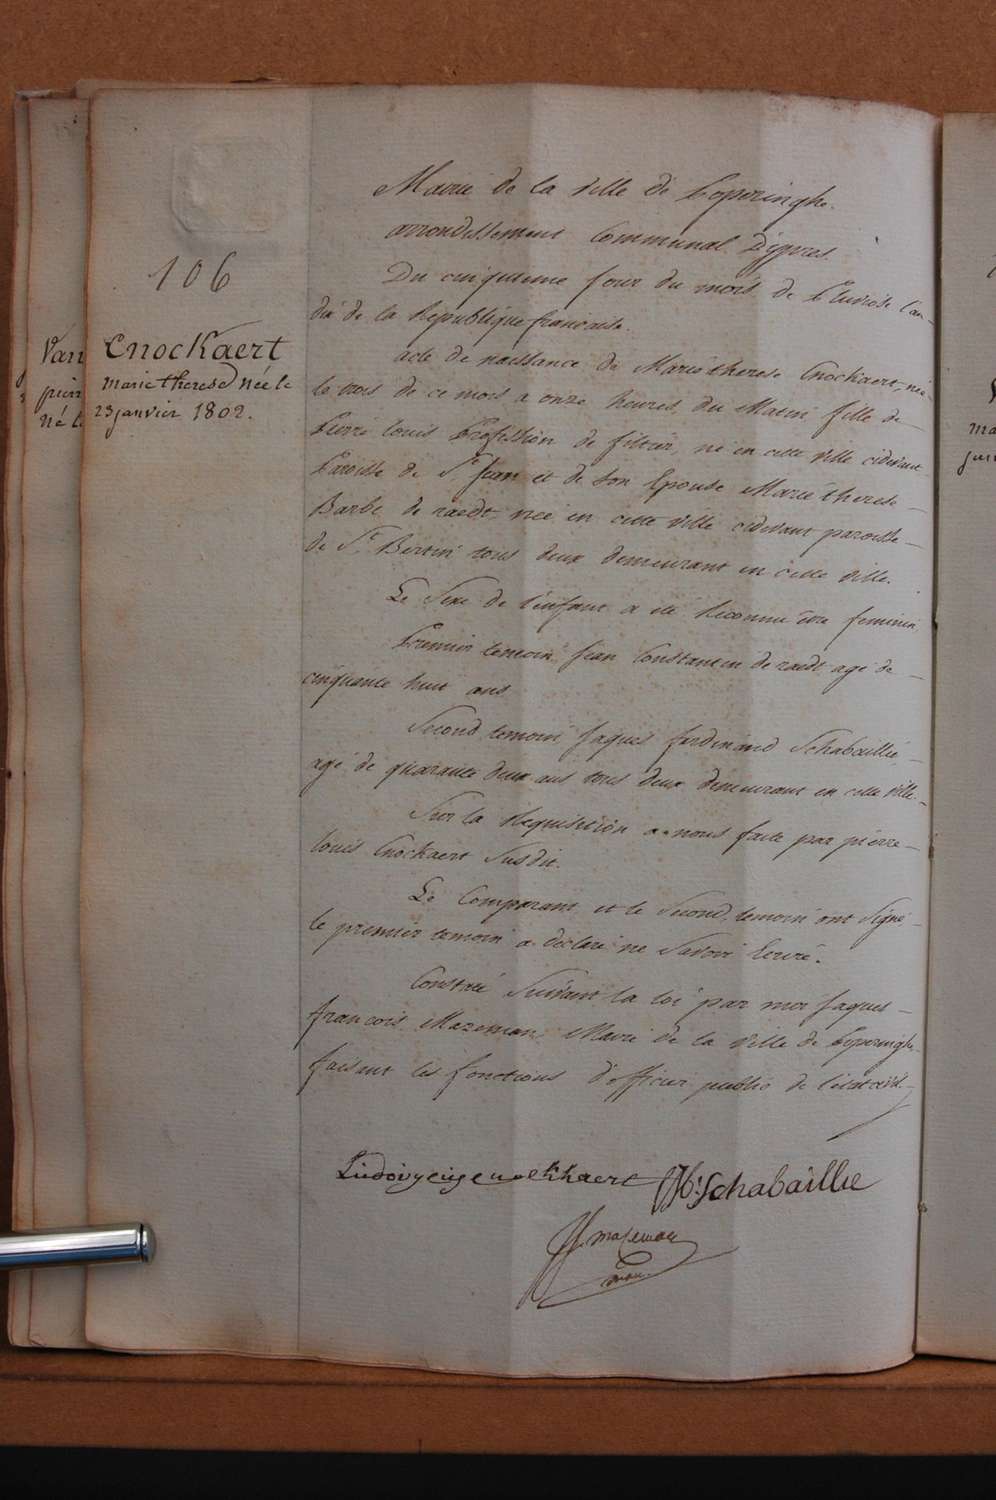 106
Cnockaert
marie therese née le
23 janvier 1802.
Mairie de la ville de Poperinghe.
arrondissement Communal D'ypres.
Du cinquieme jour du mois de Pluviose l'an
dix de la Republique francaise.
acte de naissance de Marie therese Cnockaert, née
le trois de ce mois a onze heures du Matin fille de
Pierre louis Profession de filtier, né en cette ville cidevant
Paroisse de St Jean et de son Epouse Marie therese
Barbe de raedt, née en cette ville cidevant paroisse
de St Bertin tous deux demeurant en cette ville.
Le Sexe de l'enfant a été Reconnu être feminin
Premier temoin Jean Constantin de raedt agé de
cinquante huit ans
Second temoin Jaques ferdinand Schabaillie
agé de quarante deux ans tous deux demeurant en cette ville
Sur la Requisition a nous faite par pierre
louis Cnockaert Susdit.
Le Comparant et le Second temoin ont Signé,
le premier temoin a declaré ne Savoir Ecrire.
Constaté Suivant la loi par moi Jaques
francois Mazeman Maire de la ville de Poperinghe
faisant les fonctions d'officier public de l'etat civil
Schabaillie
Mazeman
Van
né le